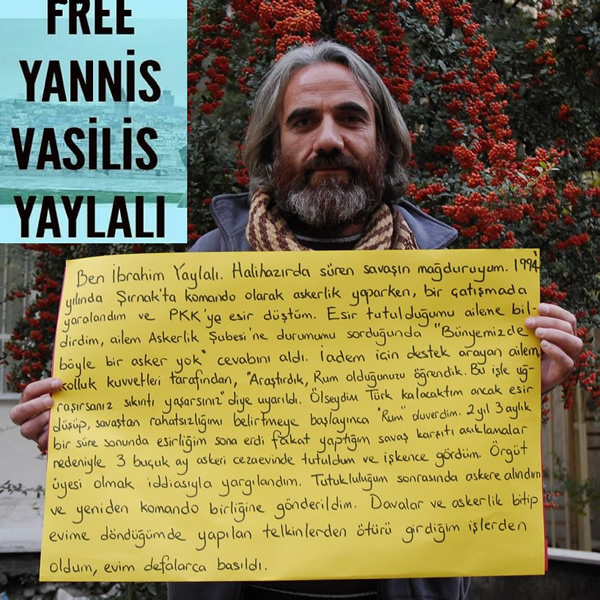 FREE
YANNİS
VASİLİS
YAYLALI
Ben İbrahim Yaylalı. Halihazırda süren savaşın mağduruyum. 1994
yılında Şırnak'ta komando olarak askerlik yaparken, bir çatışmada
yaralandım ve PKK'ya esir düştüm. Esir tutulduğumu ailene bil-
dirdim, ailem Askerlik Şubesi'ne durumu sorduğunda "Bünyemizde
böyle bir asker yok" cevabını aldı. İadem için destek arayan ailem,
kolluk kuvvetleri tarafından, "Araştırdık, Rum olduğunuzu öğrendik. Bu işle uğ-
raşırsanız sıkıntı yaşarsınız" diye uyarıldı. Ölseydim Türk kalacaktım ancak esir
düşüp, savaştan rahatsızlığımı belirtmeye başlayınca "Rum" oluverdim. 2 yıl 3 aylık
bir süre sonunda esirliğim sona erdi fakat yaptığım savaş karşıtı açıklamalar
nedeniyle 3 buçuk ay askeri cezaevinde tutuldum ve işkence gördüm. Örgüt
üyesi olmak iddiasıyla yargılandım. Tutukluluğum sonrasında askere alındım
ve yeniden komando birliğine gönderildim. Davalar ve askerlik bitip
evime döndüğümde yapılan telkinlerden ötürü girdiğim işlerden
oldum, evim defalarca basıldı.